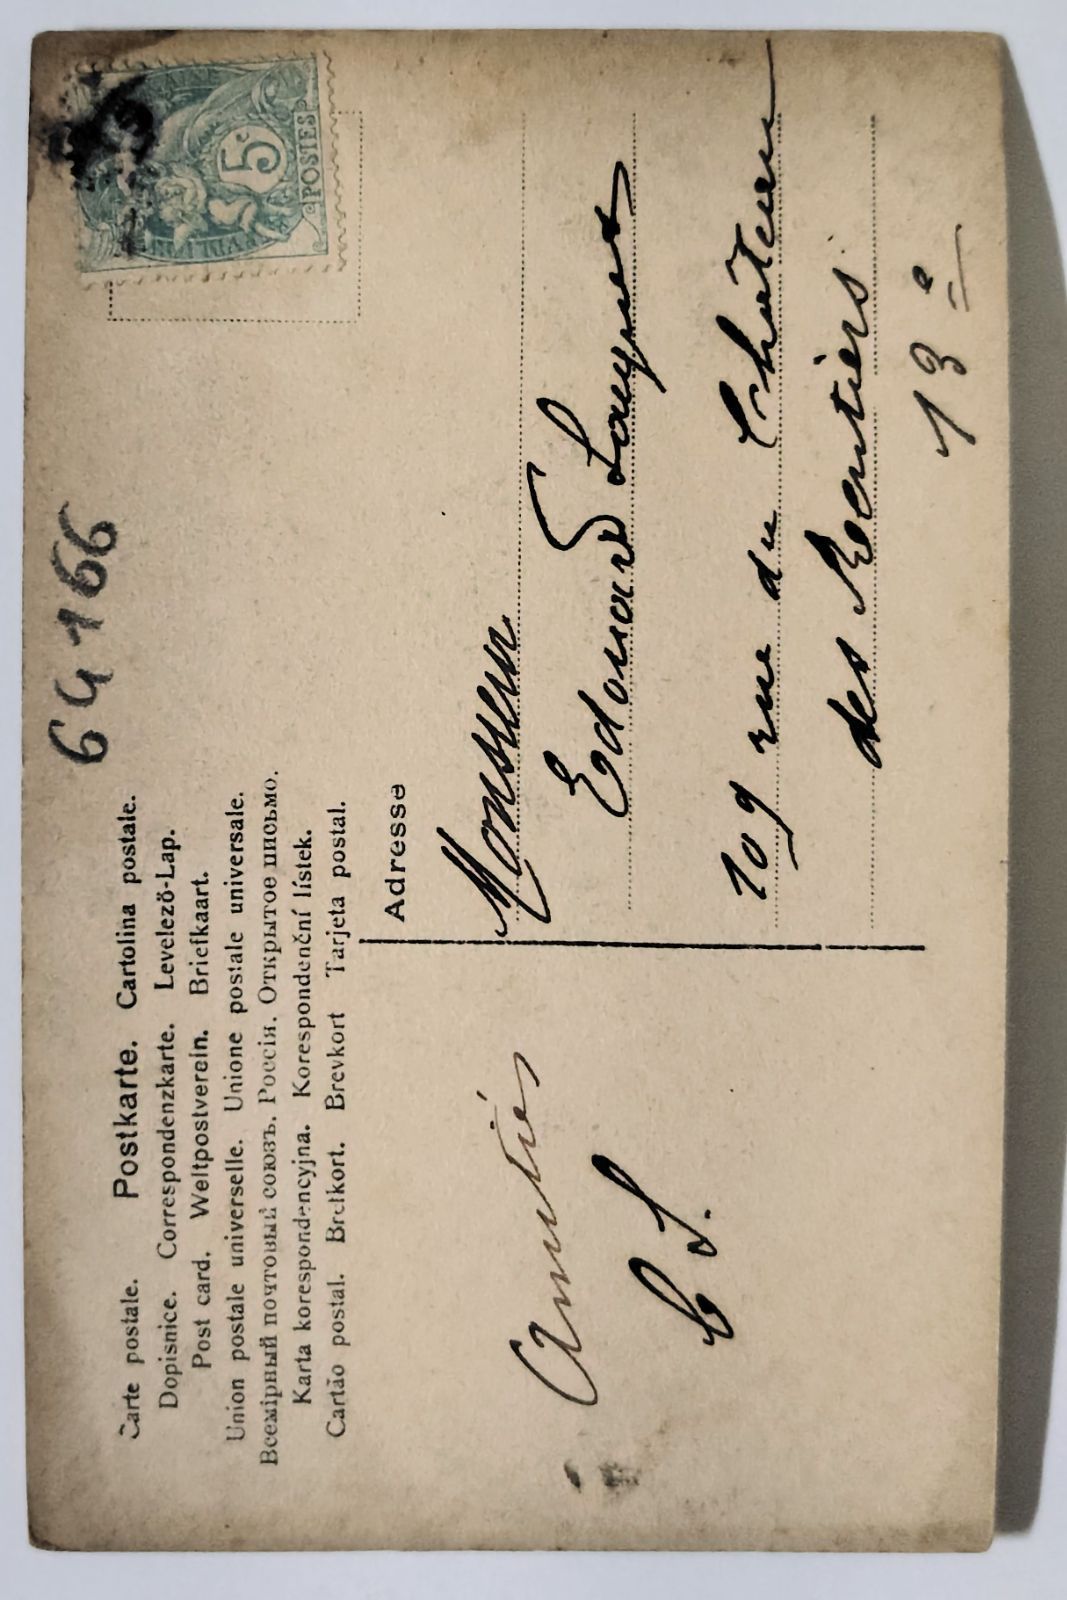 64166
Carte postale. Postkarte. Cartolina postale.
Dopisnice. Correspondenzkarte. Levelező-Lap.
Post card. Weltpostverein. Briefkaart.
Union postale universelle. Unione postale universale.
Всемірный почтовый союзъ. Россія. Открытое письмо.
Karta korespondencyjna. Korespondenční lístek.
Cartão postal. Brefkort. Brevkort Tarjeta postal.
5c
POSTES
Adresse
Amitiés
Monsieur
Edouard
109 rue du Château
des Rentiers
13e